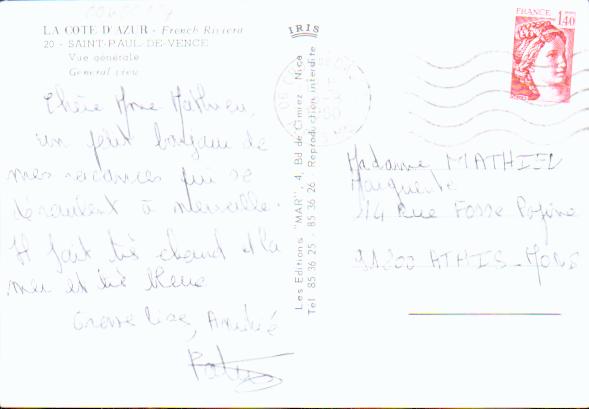 LA COTE D'AZUR - French Riviera
20 - SAINT-PAUL-DE-VENCE
Vue générale
General view
Chère Mme Mathieu,
un petit bonjour de
mes vacances qui se
déroulent à merveille.
Il fait très chaud et la
mer est très bleue
Grosse bise, André
IRIS
Les Editions "MAR", 4, Bd de Cimiez - Nice
Tel 85 36 25 - 85 36 26 Reproduction interdite
FRANCE
1,40
Madame MATHIEU
Marguerite
14 Rue Fosse
91200 ATHIS-MONS